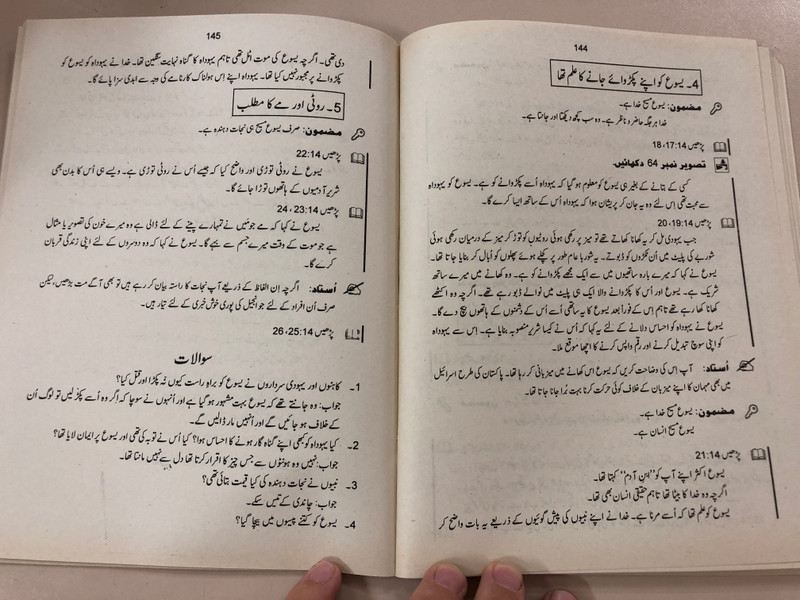 144
4۔ یسوع کو اپنے پکڑوائے جانے کا علم تھا
مضمون: یسوع مسیح خدا ہے۔
خدا ہر جگہ حاضر و ناظر ہے۔ وہ سب کچھ دیکھتا اور جانتا ہے۔
پڑھیں 17:14، 18
تصویر نمبر 64 دکھائیں۔
کسی کے بتانے کے بغیر ہی یسوع کو معلوم ہو گیا کہ یہوداہ اُسے پکڑوانے کو ہے۔ یسوع کو یہوداہ
سے محبت تھی اِس لئے وہ یہ جان کر پریشان ہوا کہ یہوداہ اُس کے ساتھ ایسا کرے گا۔
پڑھیں 19:14، 20
جب یہودی مل کر یہ کھانا کھاتے تھے تو میز پر رکھی ہوئی روٹیوں کو توڑ کر میز کے درمیان رکھی ہوئی
شوربے کی پلیٹ میں اُن ٹکڑوں کو ڈبوتے۔ یہ شوربا عام طور پر کچلے ہوئے پھلوں کو اُبال کر بنایا جاتا تھا۔
یسوع نے کہا کہ میرے بارہ ساتھیوں میں سے ایک مجھے پکڑوانے کو ہے۔ وہ کھانے میں میرے ساتھ
شریک ہے۔ یسوع اور اُس کا پکڑوانے والا ایک ہی پلیٹ میں نوالے ڈبو رہے تھے۔ اگرچہ وہ اکٹھے
کھانا کھا رہے تھے تاہم اِس کے فوراً بعد یسوع کا یہ ساتھی اُسے اُس کے دشمنوں کے ہاتھوں بیچ دے گا۔
یسوع نے یہوداہ کو احساس دلانے کے لئے یہ کہا کہ اُس نے کیسا شریر منصوبہ بنایا ہے۔ اِس سے یہوداہ
کو اپنی سوچ تبدیل کرنے اور رقم واپس کرنے کا اچھا موقع ملا۔
اُستاد: آپ اِس کی وضاحت کریں کہ یسوع اِس کھانے میں میزبانی کر رہا تھا۔ پاکستان کی طرح اسرائیل
میں بھی مہمان کا اپنے میزبان کے خلاف کوئی حرکت کرنا بہت بُرا جانا جاتا تھا۔
مضمون: یسوع مسیح خدا ہے۔
یسوع مسیح انسان ہے۔
پڑھیں 21:14
یسوع اکثر اپنے آپ کو ”ابنِ آدم“ کہتا تھا۔
اگرچہ وہ خدا کا بیٹا تھا تاہم حقیقی انسان بھی تھا۔
یسوع کو علم تھا کہ اُسے مرنا ہے۔ خدا نے اپنے نبیوں کی پیش گوئیوں کے ذریعے یہ بات واضح کر
145
دی تھی۔ اگرچہ یسوع کی موت اٹل تھی تاہم یہوداہ کا گناہ نہایت سنگین تھا۔ خدا نے یہوداہ کو یسوع کو
پکڑوانے پر مجبور نہیں کیا تھا۔ یہوداہ اپنے اس ہولناک کارنامے کی وجہ سے ابدی سزا پائے گا۔
5۔ روٹی اور مے کا مطلب
مضمون: صرف یسوع مسیح ہی نجات دہندہ ہے۔
پڑھیں 22:14
یسوع نے روٹی توڑی اور واضح کیا کہ جیسے اُس نے روٹی توڑی ہے۔ ویسے ہی اُس کا بدن بھی
شریر آدمیوں کے ہاتھوں توڑا جائے گا۔
پڑھیں 23:14، 24
یسوع نے کہا کہ مے جو میں نے تمہارے پینے کے لئے ڈالی ہے وہ میرے خون کی تصویر یا مثال
ہے جو موت کے وقت میرے جسم سے بہے گا۔ یسوع نے کہا کہ وہ دوسروں کے لئے اپنی زندگی قربان
کرے گا۔
اُستاد: اگرچہ اِن الفاظ کے ذریعے آپ نجات کا راستہ بیان کر رہے ہیں تو بھی آگے مت بڑھیں، لیکن
صرف اُن افراد کے لئے جو انجیل کی پوری خوش خبری کے لئے تیار ہیں۔
پڑھیں 25:14، 26
سوالات
1۔ کاہنوں اور یہودی سرداروں نے یسوع کو براہِ راست کیوں نہ پکڑا اور قتل کیا؟
جواب: وہ جانتے تھے کہ یسوع بہت مشہور ہو گیا ہے اور اُنہوں نے سوچا کہ اگر وہ اُسے پکڑیں تو لوگ اُن
کے خلاف ہو جائیں گے اور اُنہیں مار ڈالیں گے۔
2۔ کیا یہوداہ کو کبھی اپنے گناہ گار ہونے کا احساس ہوا؟ کیا اُس نے توبہ کی تھی اور یسوع پر ایمان لایا تھا؟
جواب: نہیں وہ ہونٹوں سے جس چیز کا اقرار کرتا تھا دل سے نہیں مانتا تھا۔
3۔ نبیوں نے نجات دہندہ کی کیا قیمت بتائی تھی؟
جواب: چاندی کے تیس سکے۔
4۔ یسوع کو کتنے پیسوں میں بیچا گیا؟